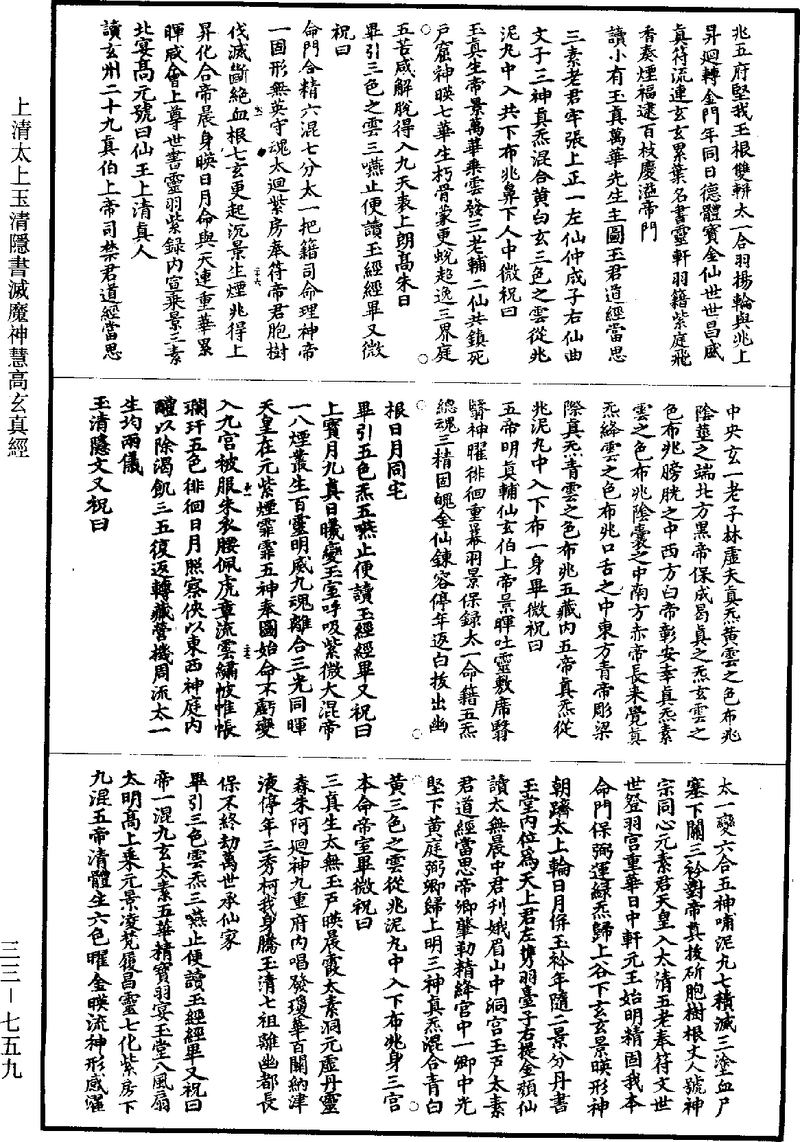 上清太上玉清隱書滅魔神慧高玄真經
三三—七五九
兆五府堅我玉根雙軿太一合羽揚輪與兆上
昇迴轉金門年同日德體寶金仙世世昌盛
真符流連玄玄累葉名書靈軒羽籍紫庭飛
香奏煙福逮百枝慶溢帝門
讀小有玉真萬華先生主圖玉君道經當思
三素老君牢張上正一左仙仲成子右仙曲
文子三神真炁混合黃白玄三色之雲從兆
泥丸中入共下布兆鼻下人中微祝曰
玉真生帝景萬華乘雲發三老輔二仙共鎮死
戶窟神暎七華生朽骨蒙更蛻超逸三界庭
五苦咸解脫得入九天表上朗高朱日
畢引三色之雲三嚥止便讀玉經經畢又微
祝曰
命門合精六混七分太一把籍司命理神帝
一固形無英守魂太迴紫房奉符帝君胞樹
伐滅斷絕血根七玄更起沉景生煙兆得上
昇化合帝晨身暎日月命與天連重華累
暉咸會上尊世書靈羽紫錄內宣乘景三素
北宴高元號曰仙王上清真人
讀玄州二十九真伯上帝司禁君道經當思
中央玄一老子林虛夫真炁黃雲之色布兆
陰莖之端北方黑帝保成曷真之炁玄雲之
色布兆膀胱之中西方白帝彰安幸真炁素
雲之色布兆陰囊之中南方赤帝長來覺真
炁絳雲之色布兆口舌之中東方青帝彫梁
際真炁青雲之色布兆五藏內五帝真炁從
兆泥丸中入下布一身畢微祝曰
五帝明真輔仙玄伯上帝景暉吐靈敷席翳
翳神曜徘徊重幕羽景保錄太一命籍五炁
總魂三精固魄金仙鍊容停年返白拔出幽
根日月同宅
畢引五色炁五嚥止便讀玉經經畢又祝曰
上寶月九真日曦變玉室呼吸紫微大混帝
一八煙叢生百靈明威九魂離合三光同暉
天皇在元紫煙霏霏五神奉圖始命不虧變
入九宮被服朱衣腰佩虎章流雲繡帔帷帳
斕玕五色徘徊日月照察俠以東西神庭內
醴以除渴飢三五復返轉藏營機周流太一
生均兩儀
玉清隱文又祝曰
太一變六合五神哺泥丸七精滅三塗血尸
塞下關三衿對帝真拔斫胞樹根丈人號神
宗同心元素君天皇入太清五老奉符文世
世登羽宮重華日中軒元王始明精固我本
命門保弼運緣炁歸上谷下玄玄景暎形神
朝躋太上輪日月併玉衿年隨二景分丹書
玉堂內位為天上君左攜羽臺子右提金頟仙
讀太無晨中君刊娥眉山中洞宮玉戶太素
君道經當思帝卿肇勒精絳宮中一卿中光
堅下黃庭弼卿歸上明三神真炁混合青白
黃三色之雲從兆泥丸中入下布兆身三宮
本命帝室畢微祝曰
三真生太無玉戶暎晨霞太素洞元虛丹靈
森朱阿迴神九重府內唱發瓊華百關納津
液停年三秀柯我身騰玉清七祖離幽都長
保不終劫萬世承仙家
畢引三色雲炁三嚥止便讀玉經經畢又祝曰
帝一混九玄太素五華精寶羽宴玉堂八風扇
太明高上乘元景凌梵履昌靈七化紫房下
九混五帝清體生六色曜金暎流神形感濯